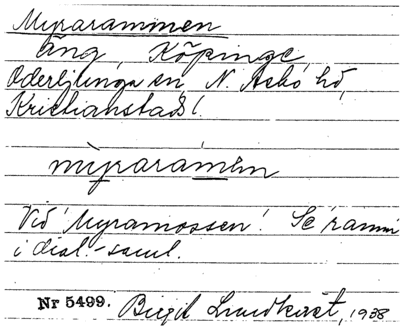 Myrarammen
äng, Köpinge,
Oderljunga sn, N. Åsbo hd,
Kristianstads l.
mỳrarámen
Vid 'Myramossen'. Se ramm
i dial.-saml.
Nr 5499. Birgit Lundkvist, 1938